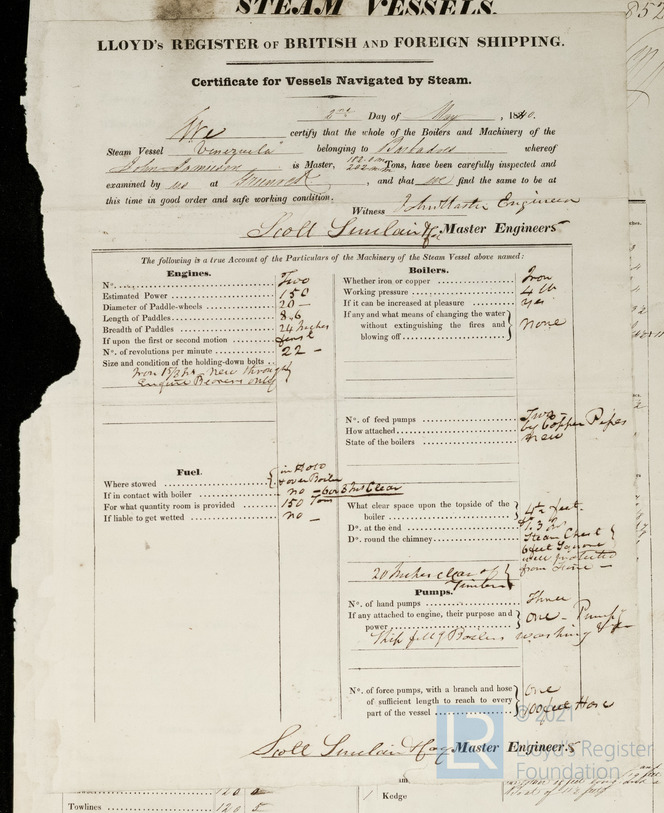 STEAM VESSELS.
852
LLOYD'S REGISTER OF BRITISH AND FOREIGN SHIPPING.
Certificate for Vessels Navigated by Steam.
2nd Day of May, 1840.
We certify that the whole of the Boilers and Machinery of the
Steam Vessel "Venezuela" belonging to Barbadoes whereof
John Jamieson is Master, Tons, have been carefully inspected and
examined by us at Greenock, and that we find the same to be at
this time in good order and safe working condition.
Witness Engineer
Scott Sinclair & Co Master Engineers
The following is a true Account of the Particulars of the Machinery of the Steam Vessel above named:
Engines.
No. Two
Estimated Power 150
Diameter of Paddle-wheels 20 –
Length of Paddles 8,6
Breadth of Paddles 24 Inches
If upon the first or second motion first
No. of revolutions per minute 22 –
Size and condition of the holding-down bolts
Iron new through
Engine Bearers only
Fuel.
Where stowed in Hold
over Boiler
If in contact with boiler no – Clear
For what quantity room is provided 150 Tons
If liable to get wetted no –
Boilers.
Whether iron or copper Iron
Working pressure 4 lb
If it can be increased at pleasure yes
If any and what means of changing the water
without extinguishing the fires and
blowing off none
No. of feed pumps Two –
How attached by Copper Pipes
State of the boilers new
What clear space upon the topside of the
boiler 4 feet
Do. at the end
Do. round the chimney Steam Chest
6 feet Square
well protected
from
20 Inches clear of
Timbers
Pumps.
No. of hand pumps Three
If any attached to engine, their purpose and
power one – Pump
Ship fillg Boilers washing &c
No. of force pumps, with a branch and hose
of sufficient length to reach to every
part of the vessel one
feet Hose
Scott Sinclair & Co Master Engineers
in
120
Towlines 120 5
1 Kedge
LR
© 2021
Lloyd's Register
Foundation